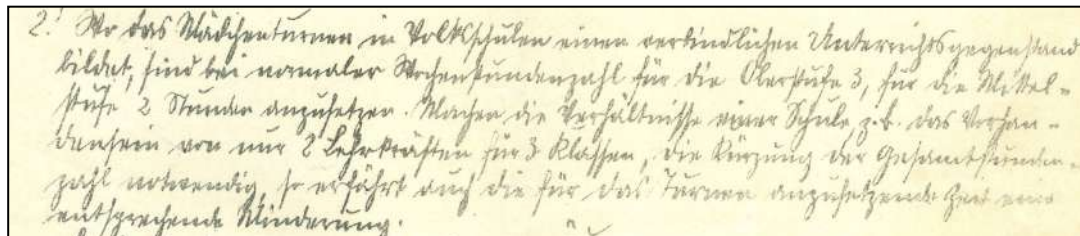 2. Wo das Mädchenturnen in Volksschulen einen verbindlichen Unterrichtsgegenstand
bildet, sind bei normaler Wochenstundenzahl für die Oberstufe 3, für die Mittel-
stufe 2 Stunden anzusetzen. Machen die Verhältnisse einer Schule, z.B. das Vorhan-
densein von nur 2 Lehrkräften für 3 Klassen, die Kürzung der Gesamtstunden-
zahl notwendig, so erfährt auch die für das Turnen anzusetzende Zeit eine
entsprechende Minderung.